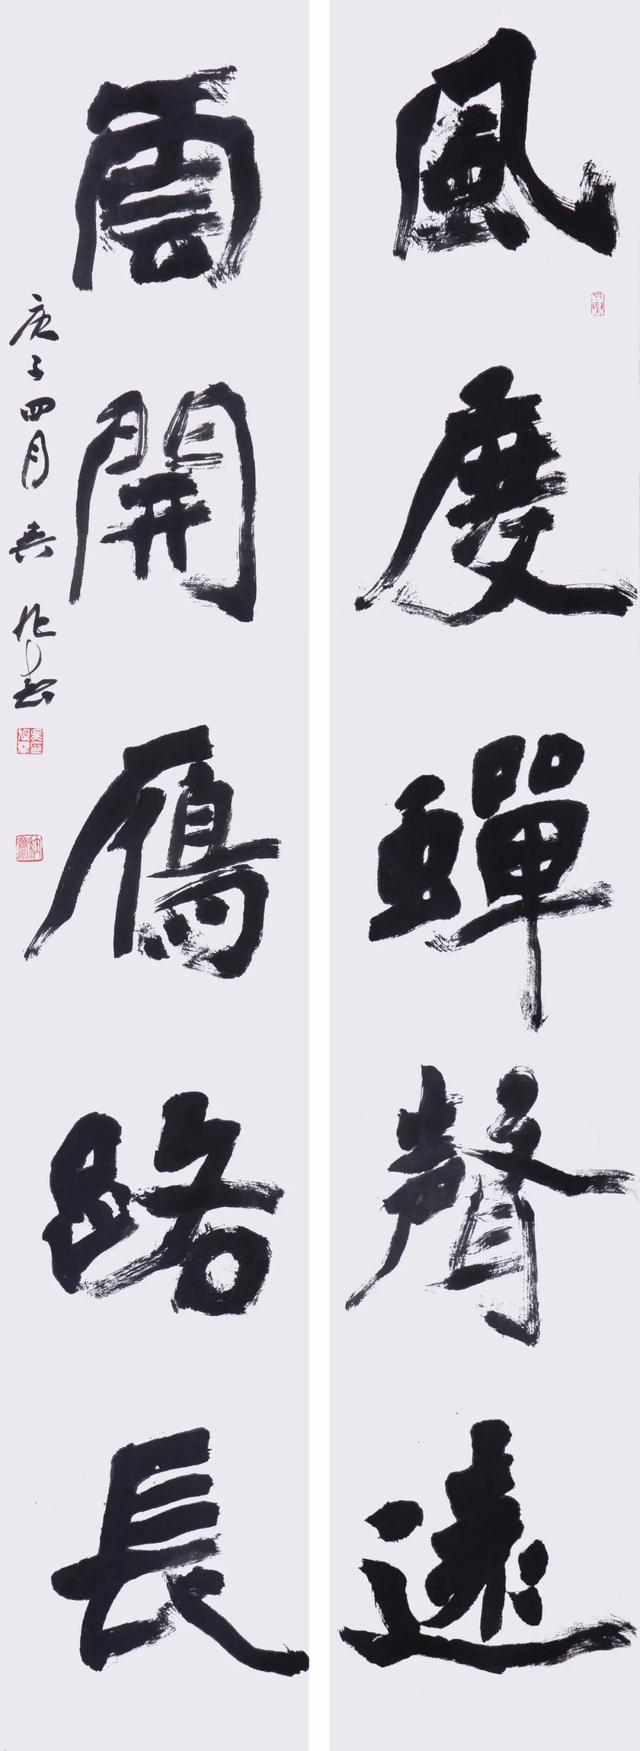 風度蟬聲遠
雲開雁路長
庚子四月